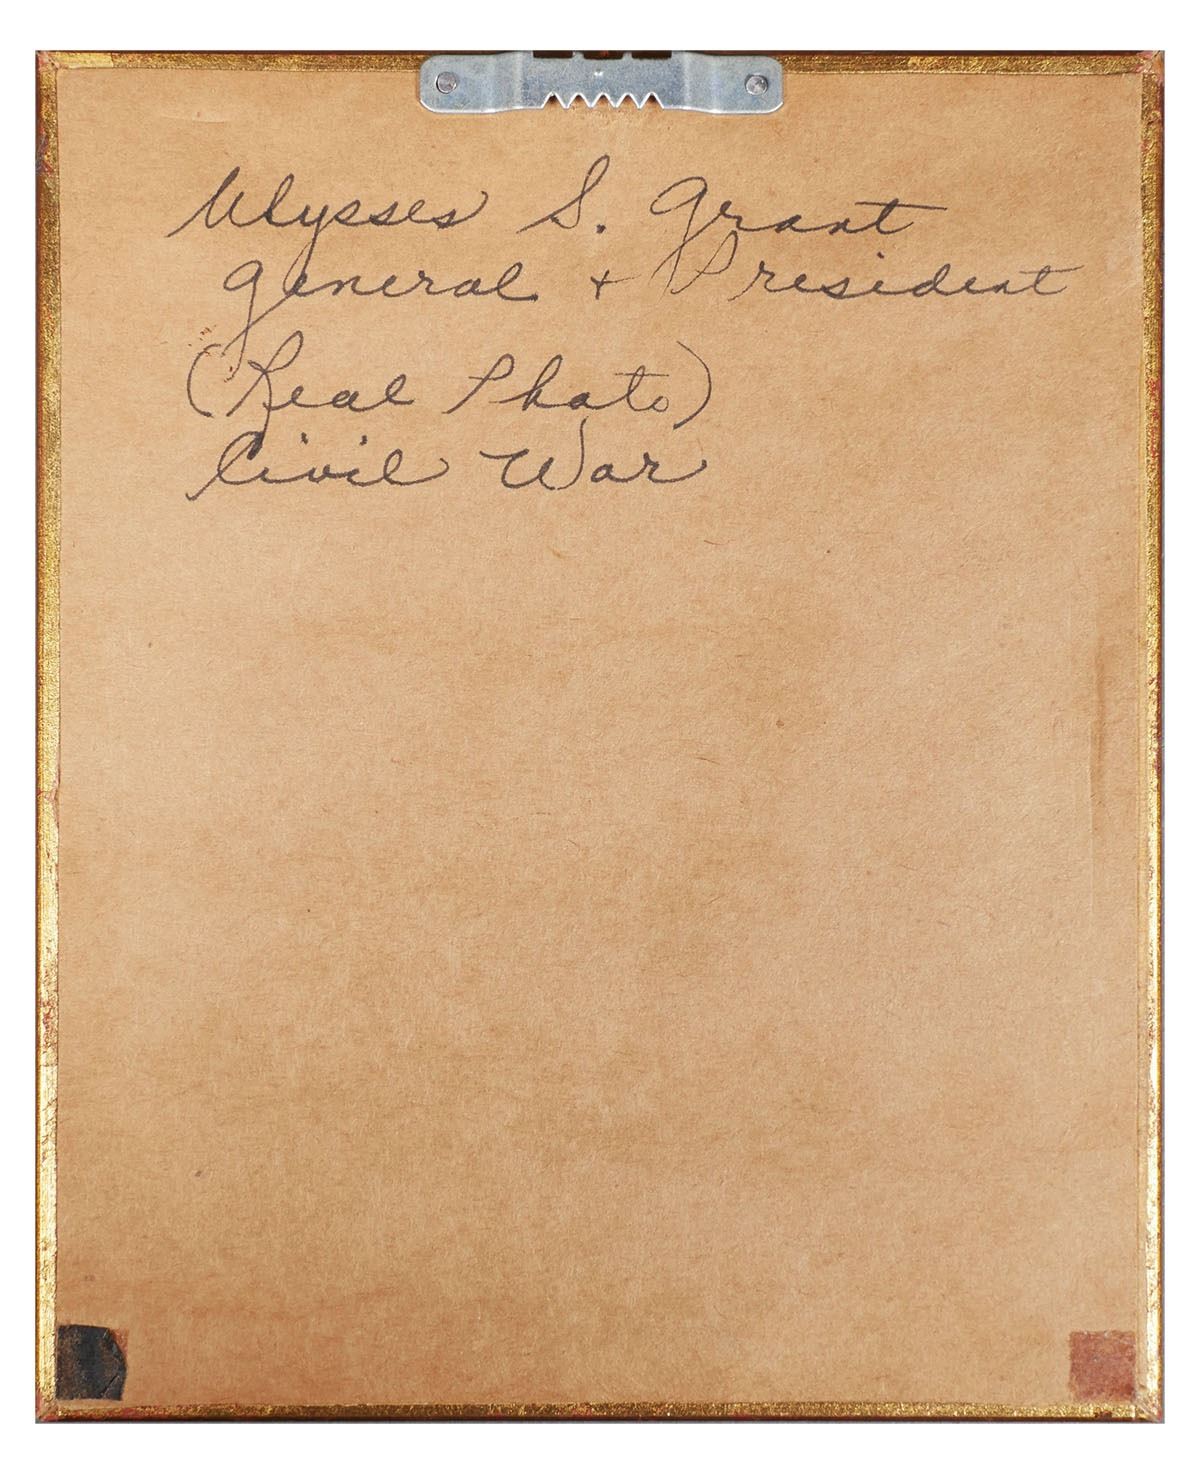 Ulysses S. Grant
General + President
(Real Photo)
Civil War